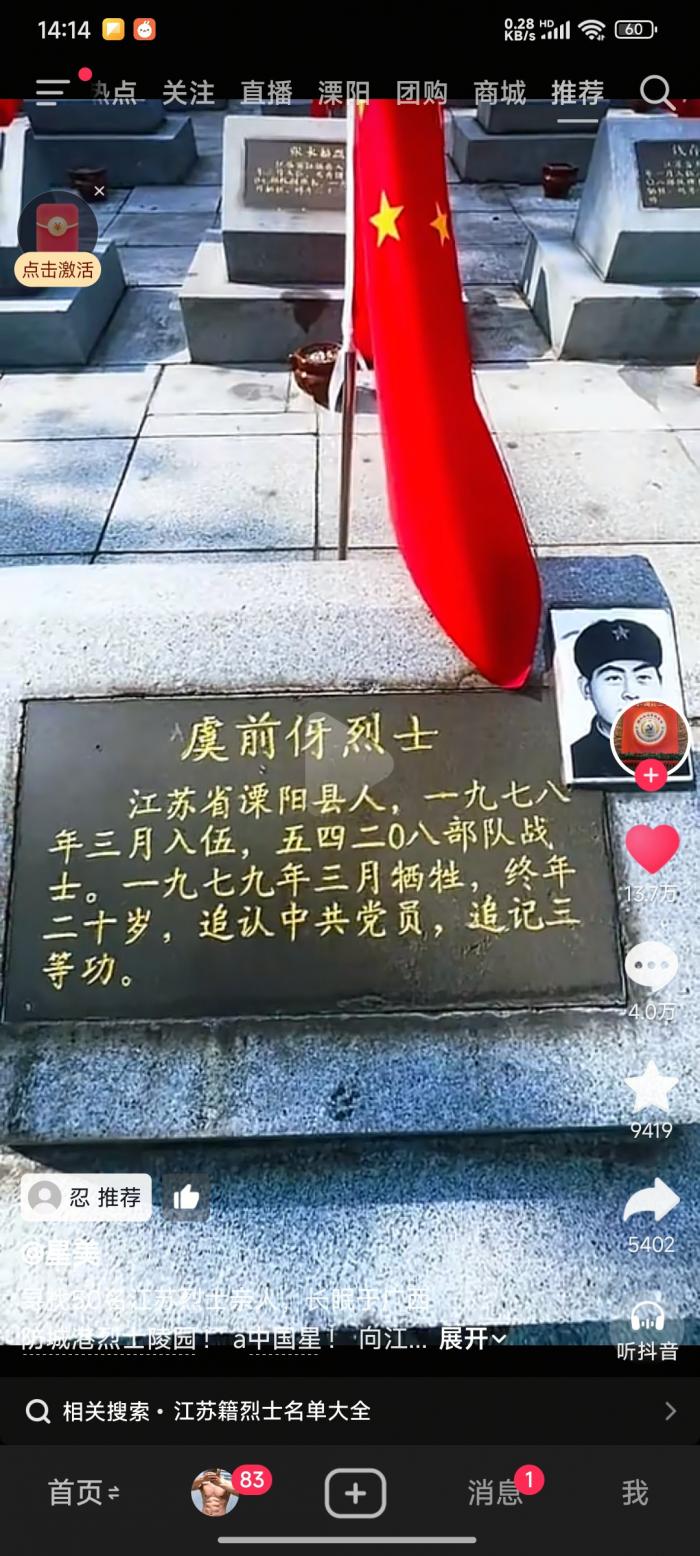 14:14
0.28 KB/s
HD
60
热点 关注 直播 溧阳 团购 商城 推荐
点击激活
虞前伢烈士
江苏省溧阳县人，一九七八
年三月入伍，五四二0八部队战
士。一九七九年三月牺牲，终年
二十岁，追认中共党员，追记三
等功。
13.7万
4.0万
9419
5402
听抖音
忍 推荐
@星美
江苏烈士亲人，长眠于广西
防城港烈士陵园！ a中国星！ 向江... 展开
相关搜索· 江苏籍烈士名单大全
首页
83
消息
1
我